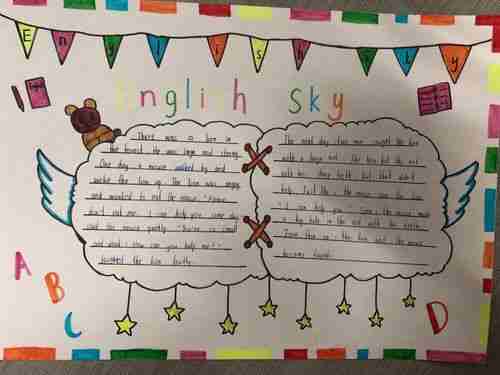 English fly
English Sky
There was a lion in
the forest. He was large and strong.
One day a mouse walked by and
woke the lion up. The lion was angry
and wanted to eat the mouse. "Please
don't eat me. I can help you some day"
said the mouse gently. "You're so small
and weak! How can you help me?"
laughed the lion loudly.
The next day two men caught the lion
with a large net. The lion bit the net
with his sharp teeth but that didn't
help. Just then, the mouse saw the lion
"I can help you." Soon the mouse made
a big hole in the net with his teeth.
From then on, the lion and the mouse
became friends.
A
B
C
D